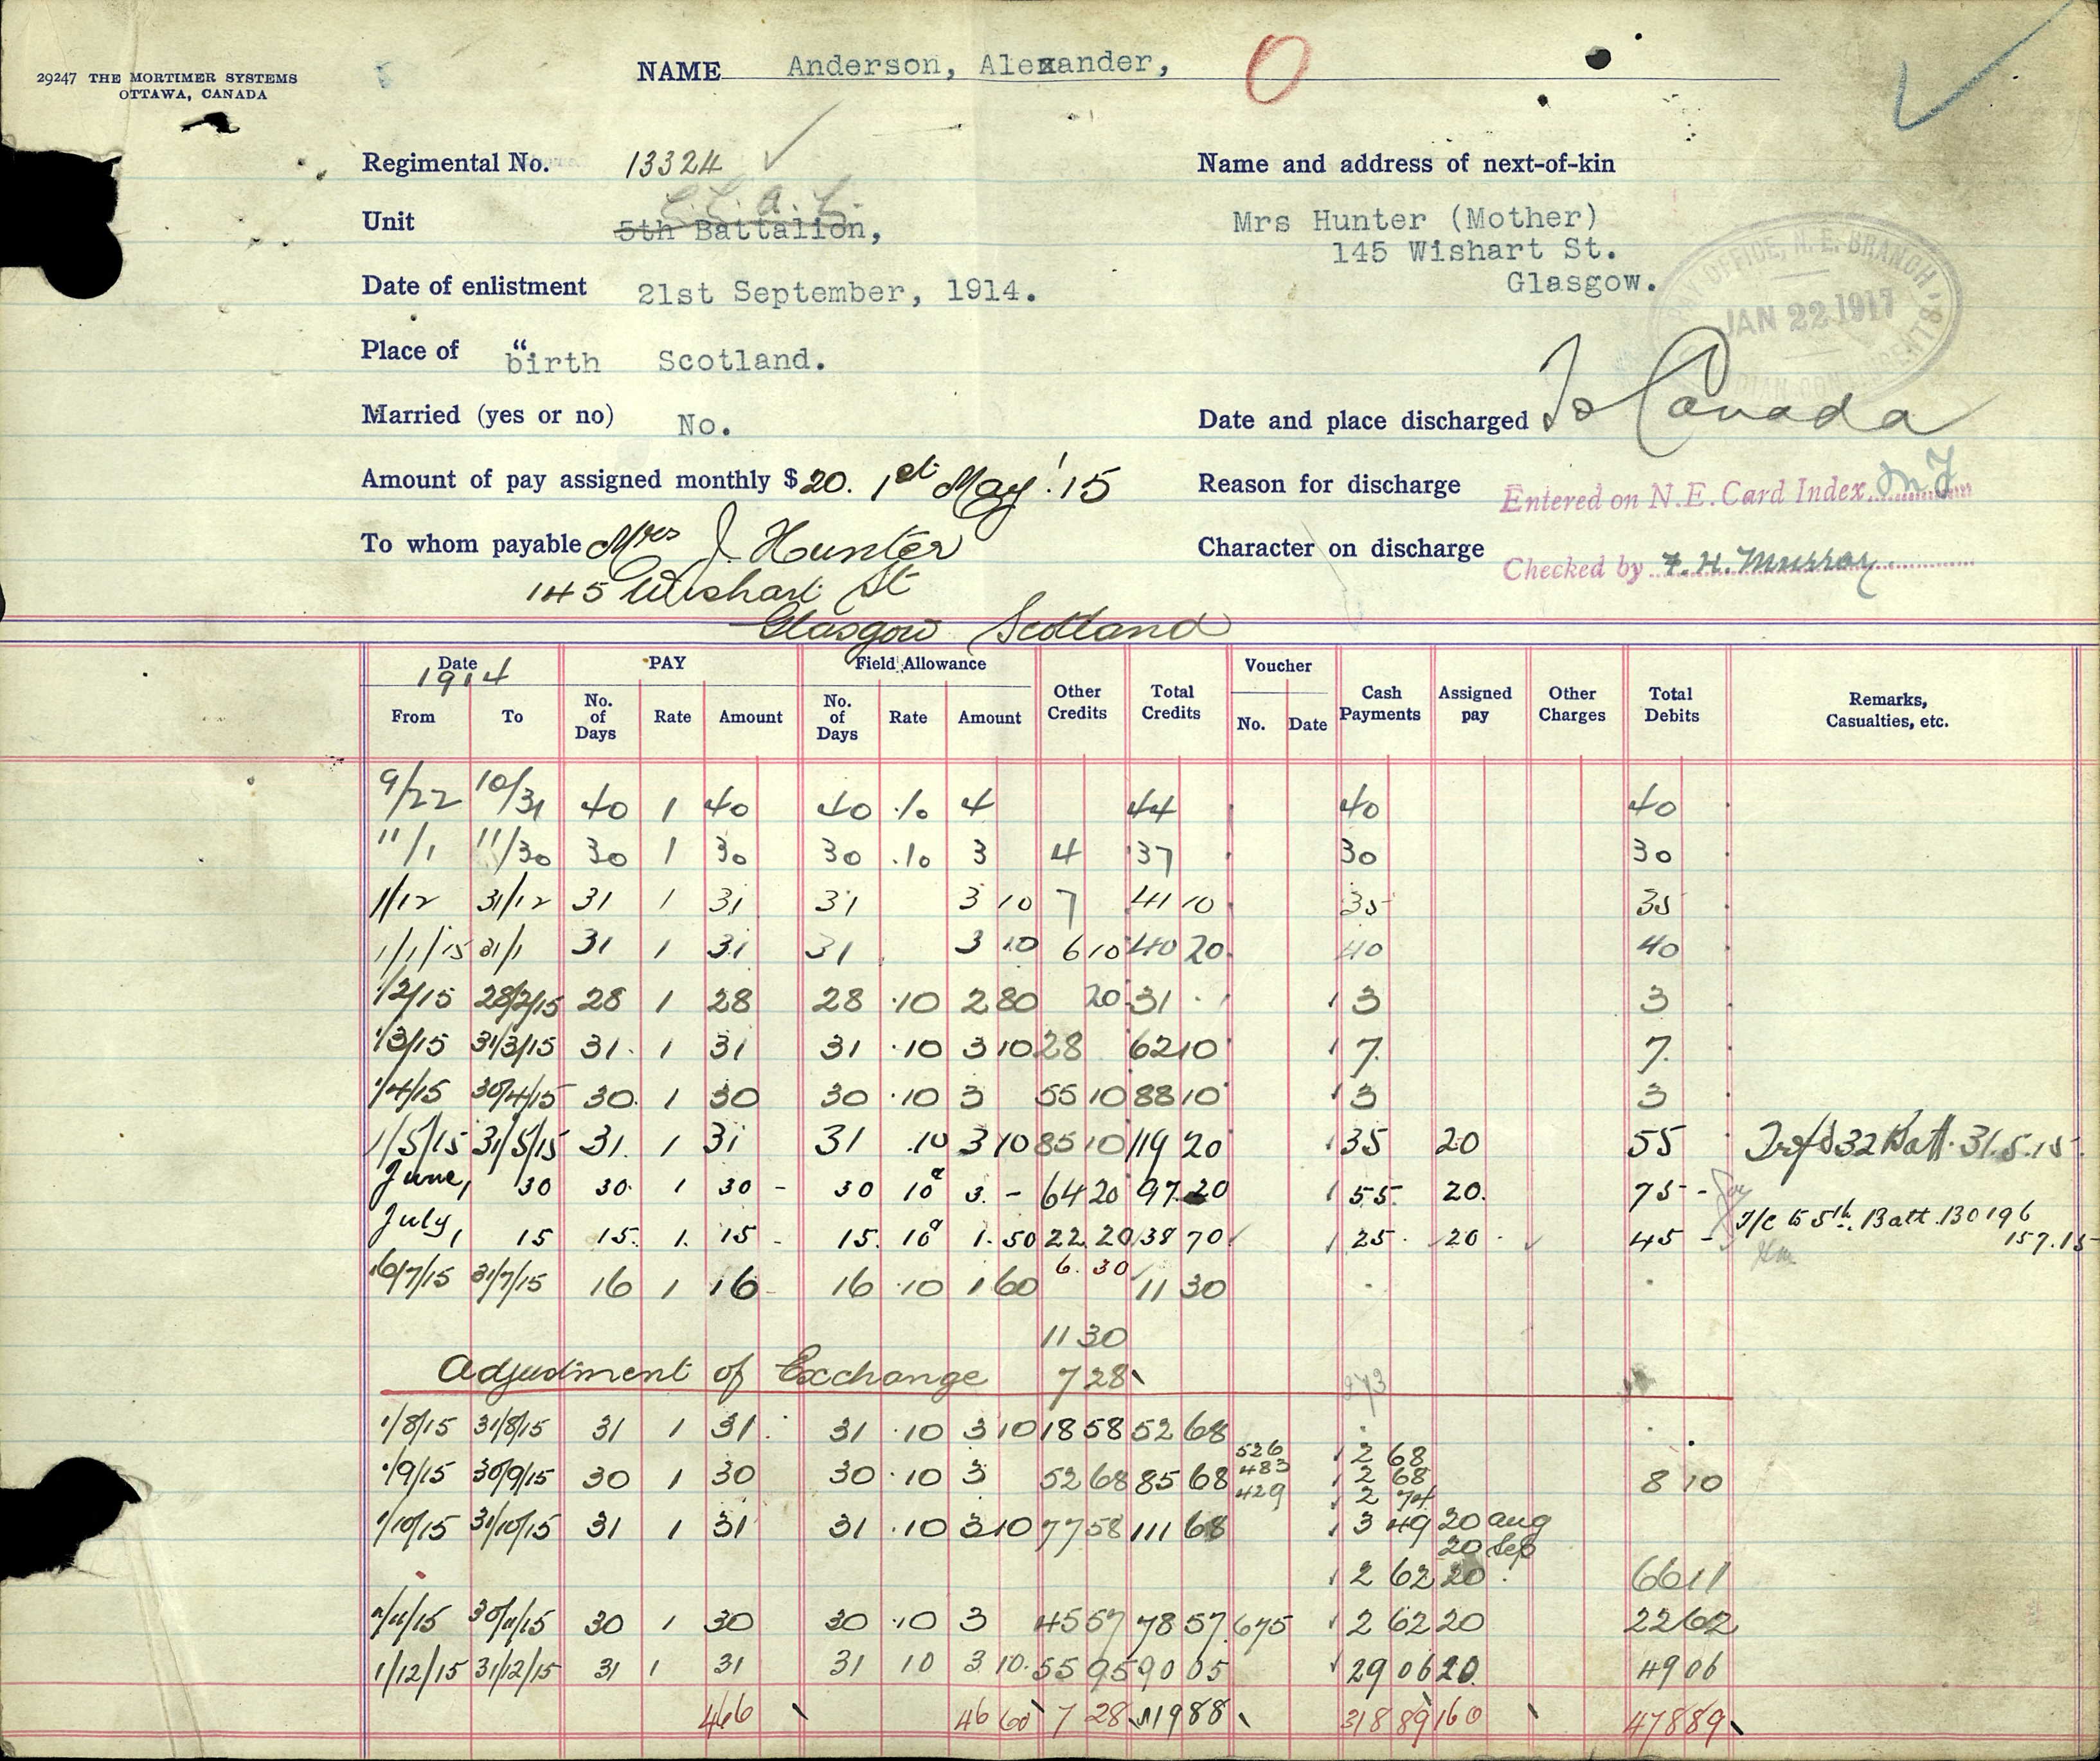 29247 THE MORTIMER SYSTEMS
OTTAWA, CANADA
NAME Anderson, Alexander,
O
Regimental No. 13324
Unit 5th Battalion,
Date of enlistment 21st September, 1914.
Place of " birth Scotland.
Married (yes or no) No.
Amount of pay assigned monthly $ 20. 1st May '15
To whom payable Mrs J. Hunter
145 Wishart St
Glasgow Scotland
Name and address of next-of-kin
Mrs Hunter (Mother)
145 Wishart St.
Glasgow.
PAY OFFICE, N. E. BRANCH
JAN 22 1917
Date and place discharged To Canada
Reason for discharge
Entered on N.E. Card Index
Character on discharge
Checked by F. H. Murray
Date 1914 PAY Field Allowance Other Credits Total Credits Voucher Cash Payments Assigned pay Other Charges Total Debits Remarks, Casualties, etc.
From To No. of Days Rate Amount No. of Days Rate Amount No. Date
9/22 10/31 40 1 40 40 .10 4 44 40 40
11/1 11/30 30 1 30 30 .10 3 4 37 30 30
1/12 31/12 31 1 31 31 3 10 7 41 10 35 35
1/1/15 31/1 31 1 31 31 3 10 6 10 40 20 40 40
1/2/15 28/2/15 28 1 28 28 .10 2 80 20 31 3 3
1/3/15 31/3/15 31 1 31 31 .10 3 10 28 62 10 7 7
1/4/15 30/4/15 30 1 30 30 .10 3 55 10 88 10 3 3
1/5/15 31/5/15 31 1 31 31 .10 3 10 85 10 119 20 35 20 55 Trsfd 32 Batt. 31.5.15
June, 30 30 1 30 - 30 10 3. - 64 20 97 20 55 20 75 -
July, 15 15 1 15 - 15 10 1.50 22 20 38 70 25 20 45 - T/c to 5th Batt. 130196
15.7.15
16/7/15 31/7/15 16 1 16 - 16 .10 1 60 6. 30 11 30
11 30
Adjustment of Exchange 7 28
1/8/15 31/8/15 31 1 31 31 .10 3 10 18 58 52 68
1/9/15 30/9/15 30 1 30 30 .10 3 52 68 85 68 526 2 68
483 2 68 8 10
429 2 74
1/10/15 31/10/15 31 1 31 31 .10 3 10 77 58 111 68 3 49 20 Aug
20 Sep
2 62 20 66 11
1/11/15 30/11/15 30 1 30 30 .10 3 45 57 78 57 675 2 62 20 22 62
1/12/15 31/12/15 31 1 31 31 10 3 10 55 95 90 05 29 06 20 49 06
466 46 60 7 28 519 88 318 89 160 478 89